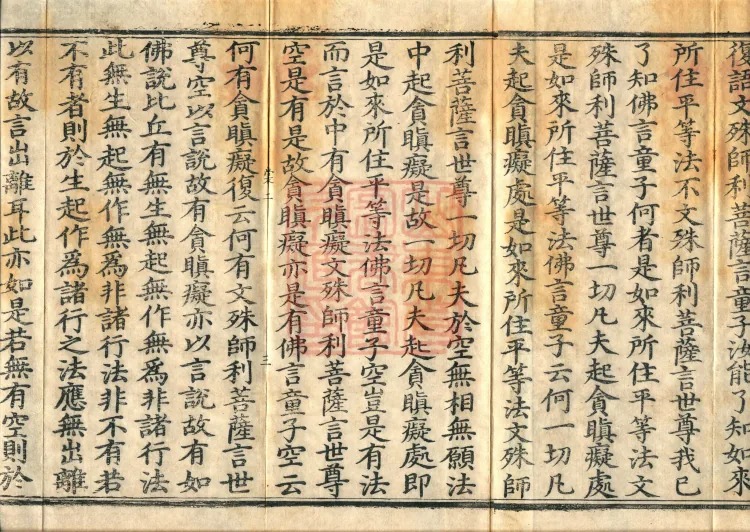 復語文殊師利菩薩言童子汝能了知如來
所住平等法不文殊師利菩薩言世尊我已
了知佛言童子何者是如來所住平等法文
殊師利菩薩言世尊一切凡夫起貪瞋癡處
是如來所住平等法佛言童子云何一切凡
夫起貪瞋癡處是如來所住平等法文殊師
利菩薩言世尊一切凡夫於空無相無願法
中起貪瞋癡是故一切凡夫起貪瞋癡處即
是如來所住平等法佛言童子空豈是有法
而言於中有貪瞋癡文殊師利菩薩言世尊
空是有是故貪瞋癡亦是有佛言童子空云
何有貪瞋癡復云何有文殊師利菩薩言世
尊空以言說故有貪瞋癡亦以言說故有如
佛說比丘有無生無起無作無為非諸行法
此無生無起無作無為非諸行法非不有若
不有者則於生起作為諸行之法應無出離
以有故言出離耳此亦如是若無有空則於